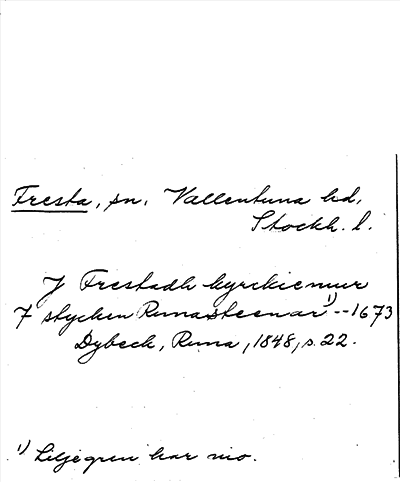 Fresta, sn. Vallentuna hd,
Stockh. l.
J Frestadh kyrckiemur
7 stycken Runasteenar¹⁾ -- 1673
Dybeck, Runa, 1848, s. 22.
¹⁾ Liljegren har nio.